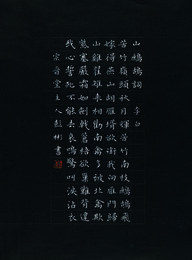 山鷓鴣詞 李白
苦竹嶺頭秋月輝苦竹南枝鷓鴣飛
嫁得燕山胡雁婿欲銜我向雁門歸
山雞翟雉來相勸南禽多被北禽欺
紫塞嚴霜如劍戟蒼梧欲巢難背違
我心誓死不能去哀鳴驚叫淚沾衣
宗音堂主人彭彬書